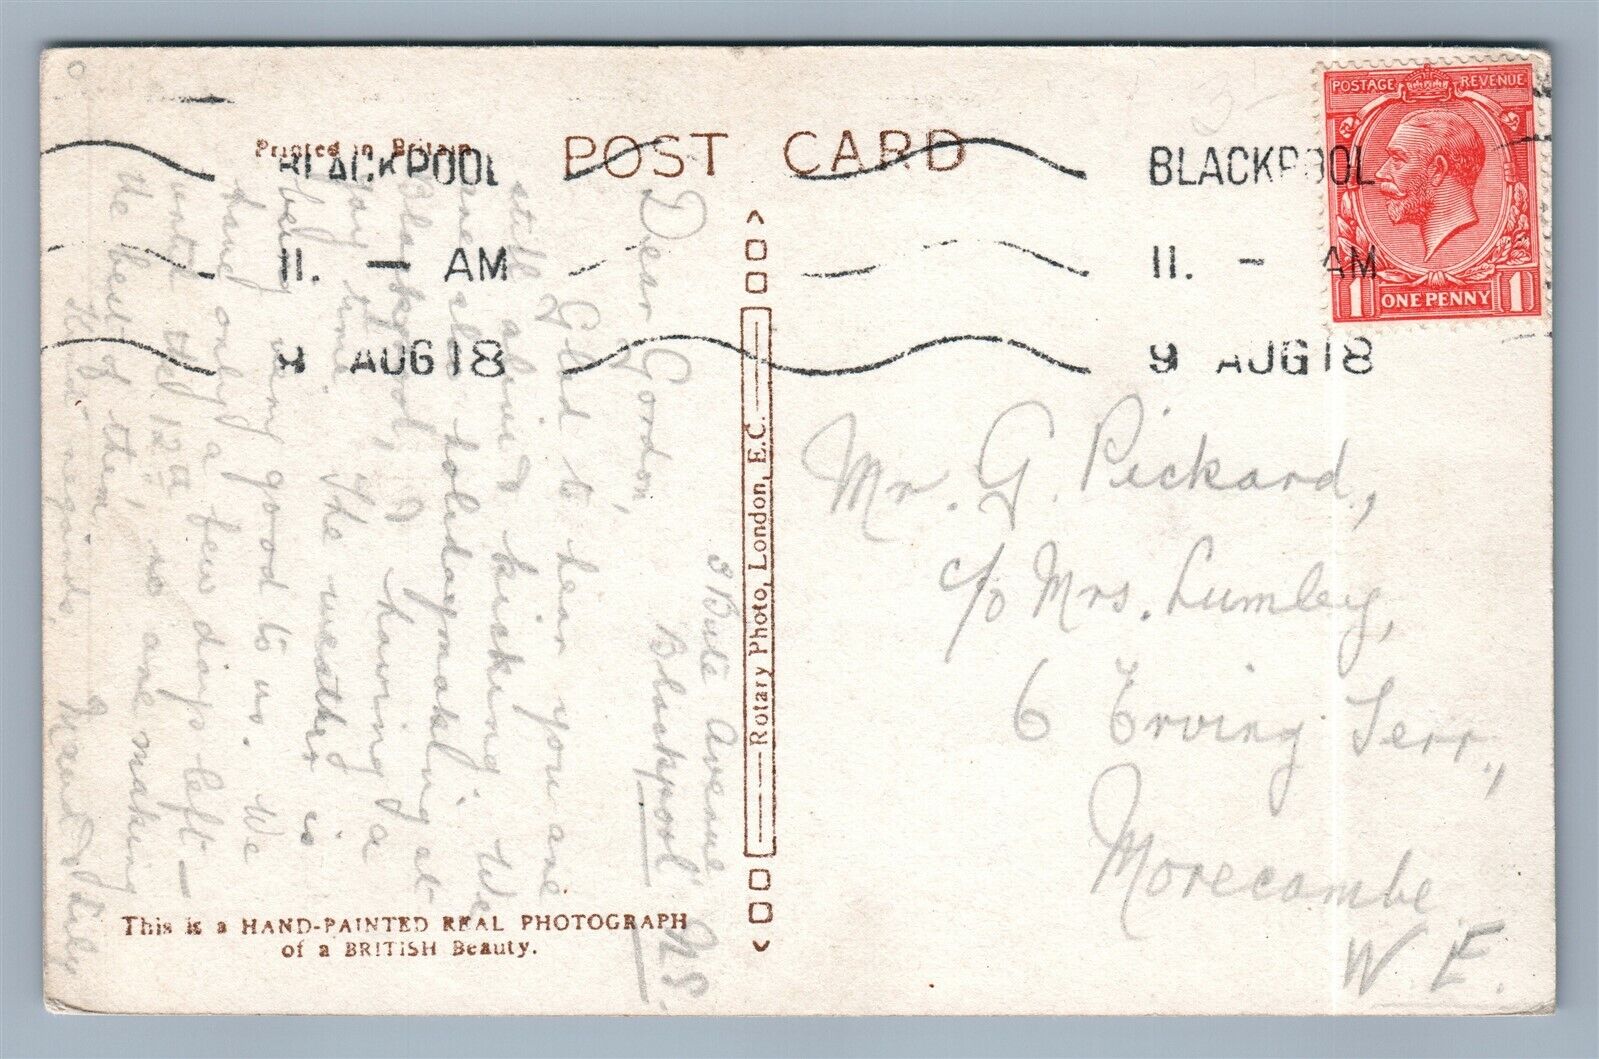 Printed in Britain
POST CARD
POSTAGE REVENUE
1 ONE PENNY 1
BLACKPOOL
11. - AM
9 AUG 18
BLACKPOOL
11. - AM
9 AUG 18
3 Bute Avenue
Blackpool N.S.
Dear Gordon,
Glad to hear you are
still alive & kicking. We
are all holidaymaking at
Blackpool, & having a
gay time. The weather is
being very good to us. We
have only a few days left -
until the 12th, so are making
the best of them.
Kind regards,
Rotary Photo, London, E.C.
This is a HAND-PAINTED REAL PHOTOGRAPH
of a BRITISH Beauty.
Mr. G. Pickard,
c/o Mrs. Lumley,
6 Erving Terr.,
Morecambe.
W. E.